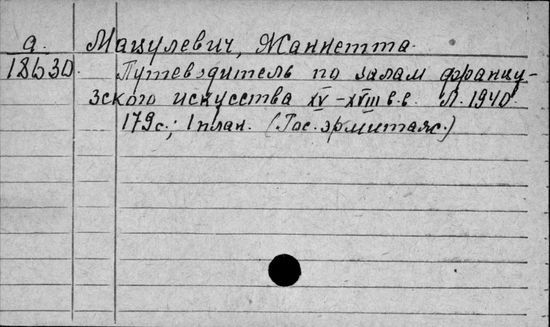 а. Мацулевич, Жаннетта.
18630. Путеводитель по залам францу-
зского искусства XV-XVIII в.в. Л. 1940.
179с.; 1 план. (Гос. эрмитаж.)